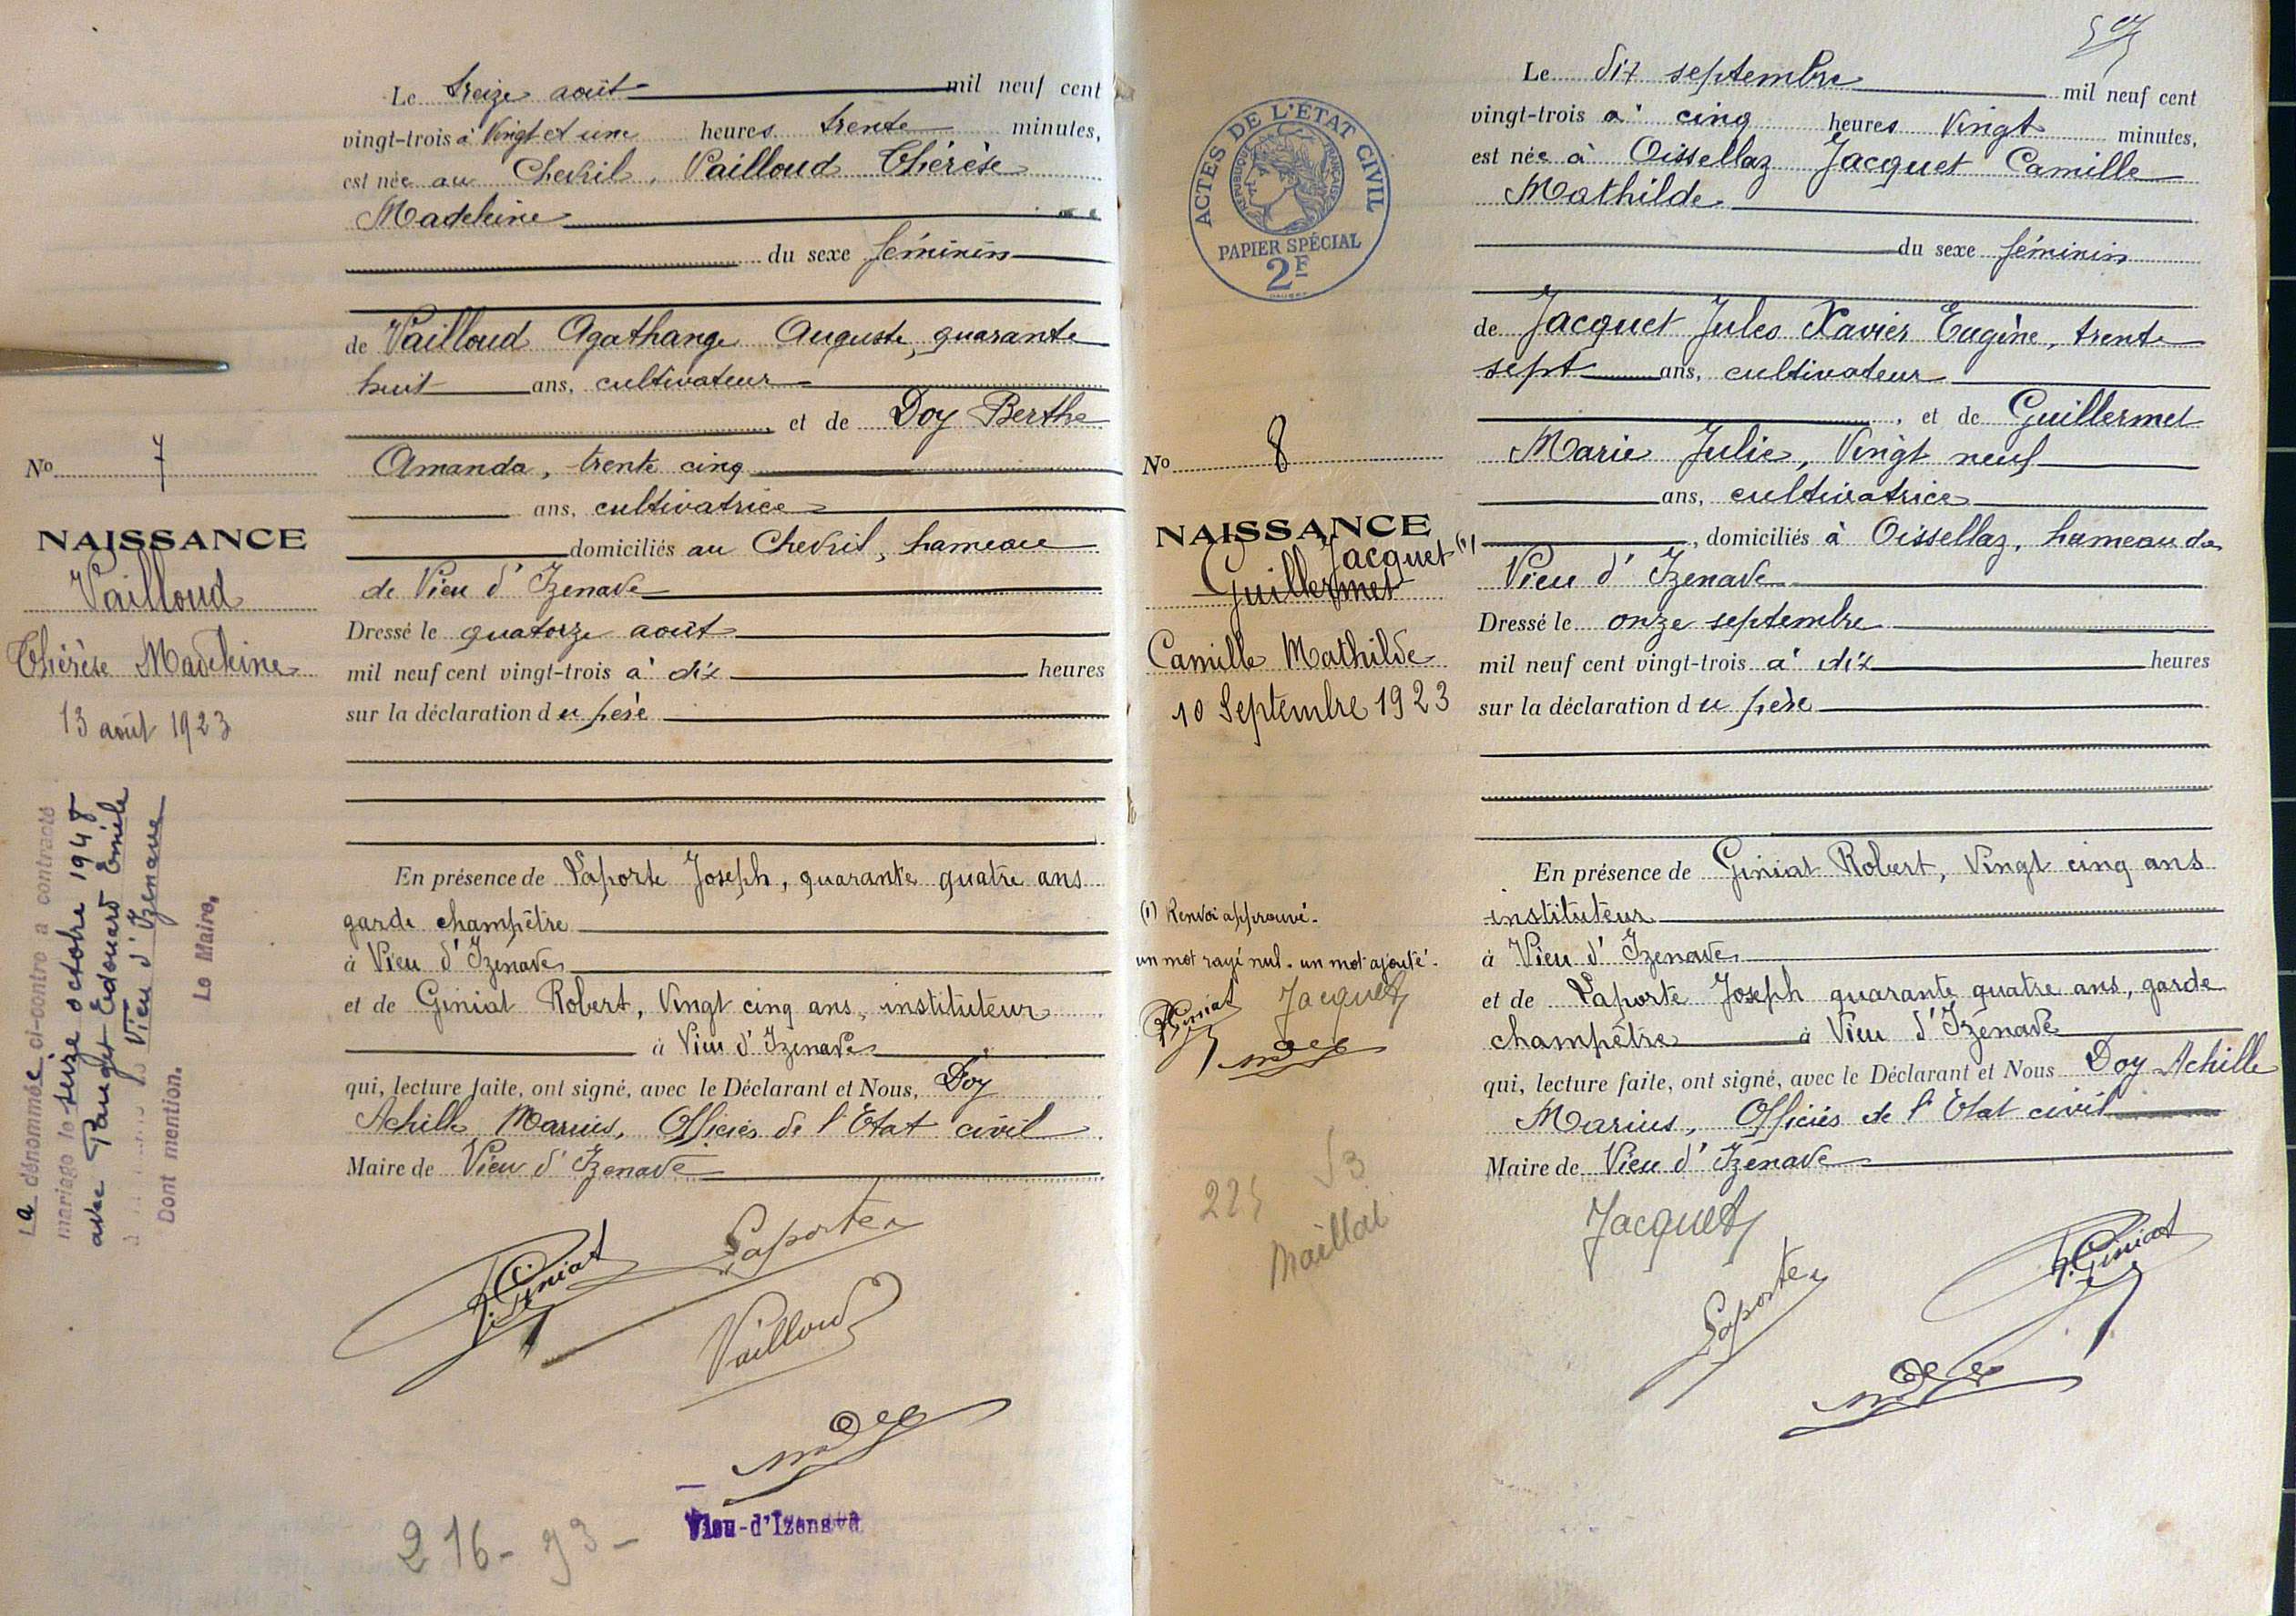 Le treize août mil neuf cent
vingt-trois à Vingt et une heures trente minutes,
est née au Chevril, Vailloud Thérèse
Madeleine
du sexe féminin
de Vailloud Agathange Auguste, quarante
huit ans, cultivateur
, et de Doy Berthe
Amanda, trente cinq
ans, cultivatrice
domiciliés au Chevril, hameau
de Vieu d'Izenave
Dressé le quatorze août
mil neuf cent vingt-trois à dix heures
sur la déclaration du père
En présence de Laporte Joseph, quarante quatre ans
garde champêtre
à Vieu d'Izenave
et de Giniat Robert, Vingt cinq ans, instituteur
à Vieu d'Izenave
qui, lecture faite, ont signé, avec le Déclarant et Nous, Doy
Achille Marius, Officier de l'Etat civil
Maire de Vieu d'Izenave
R. Giniat
Laporte
Vailloud
Vieu-d'Izenave
216-93-
No 7
NAISSANCE
Vailloud
Thérèse Madeleine
13 août 1923
La dénommée ci-contre a contracté
mariage le seize octobre 1948
avec Ponget Edouard Emile
à Vieu d'Izenave
Dont mention.
Le Maire,
Le dix septembre mil neuf cent
vingt-trois à cinq heures Vingt minutes,
est née à Oissellaz Jacquet Camille
Mathilde
du sexe féminin
de Jacquet Jules Xavier Eugène, trente
sept ans, cultivateur
, et de Guillermet
Marie Julie, Vingt neuf
ans, cultivatrice
, domiciliés à Oissellaz, hameau de
Vieu d'Izenave
Dressé le onze septembre
mil neuf cent vingt-trois à dix heures
sur la déclaration du père
En présence de Giniat Robert, Vingt cinq ans
instituteur
à Vieu d'Izenave
et de Laporte Joseph quarante quatre ans, garde
champêtre à Vieu d'Izenave
qui, lecture faite, ont signé, avec le Déclarant et Nous Doy Achille
Marius, Officier de l'Etat civil
Maire de Vieu d'Izenave
Jacquet
Laporte
R. Giniat
ACTES DE L'ÉTAT CIVIL
RÉPUBLIQUE FRANÇAISE
PAPIER SPÉCIAL
2F
No 8
NAISSANCE
Jacquet (1)
Guillermet
Camille Mathilde
10 Septembre 1923
(1) Renvoi approuvé.
un mot rayé nul. un mot ajouté.
R. Giniat Jacquet
Maillat